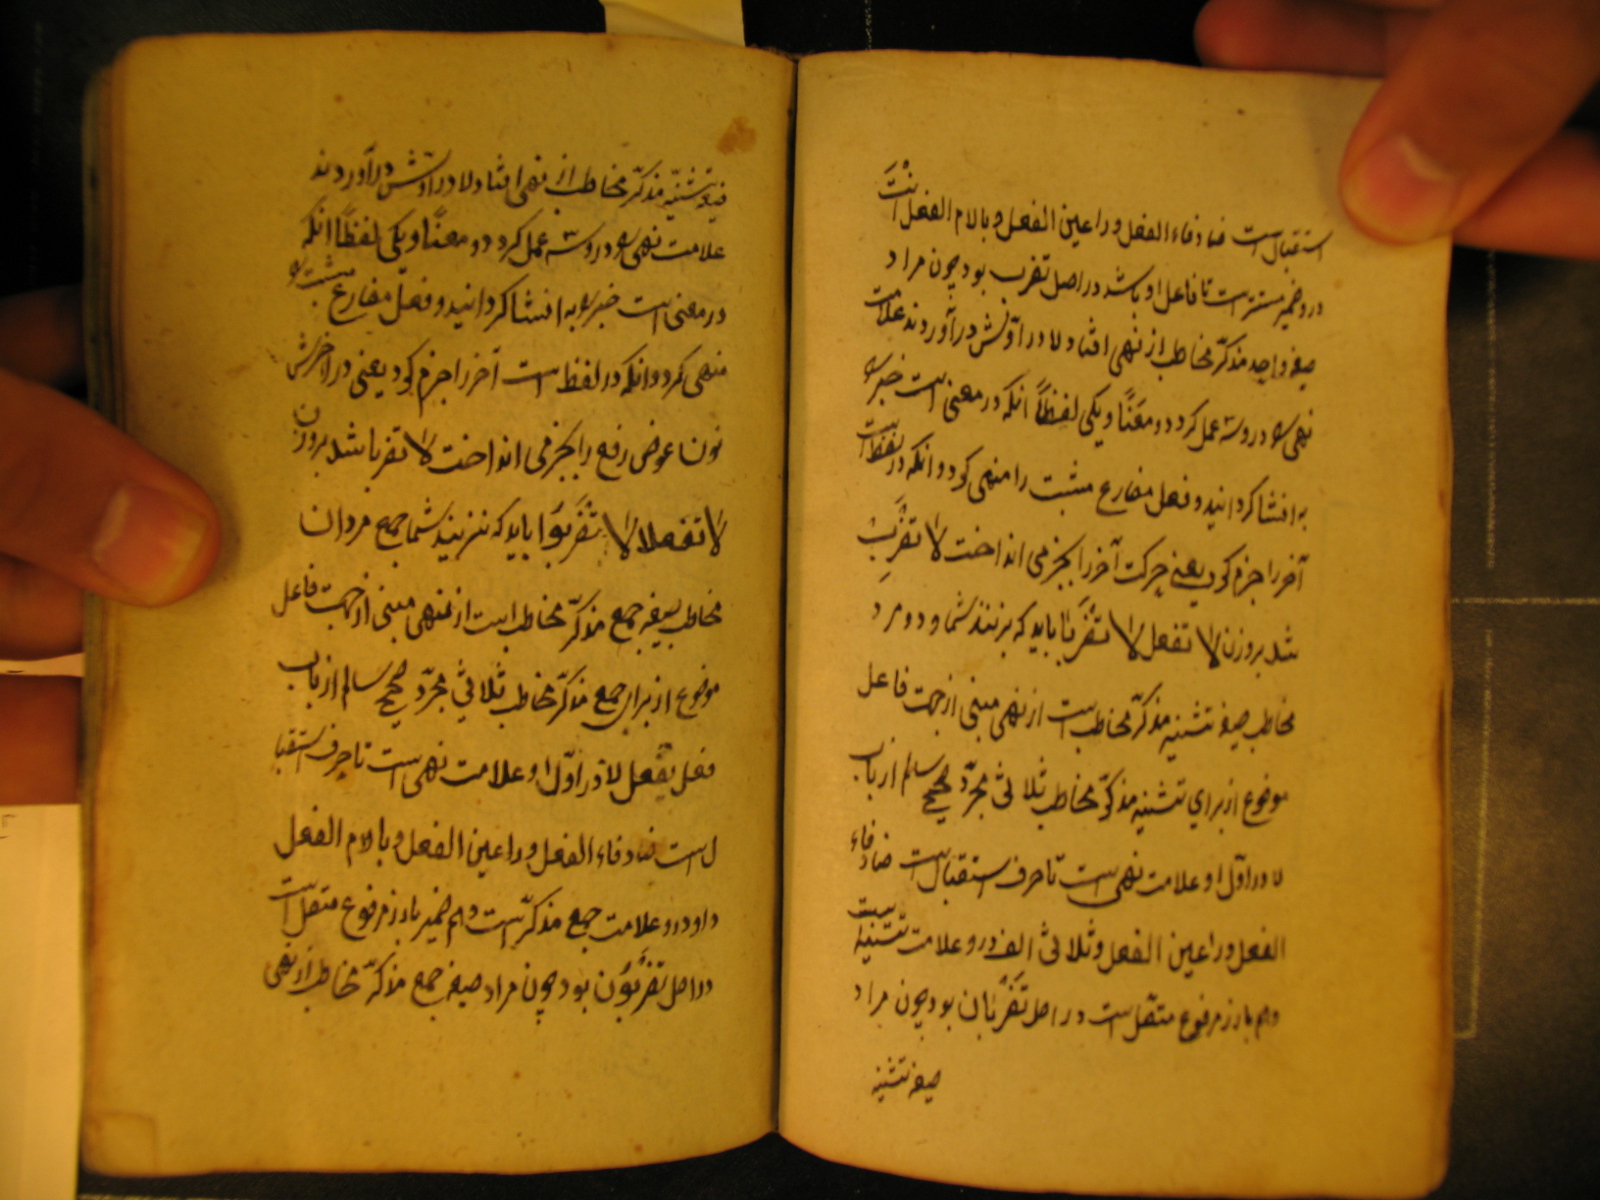 استقبال است ضاد فاء الفعل و را عین الفعل و با لام الفعل انت
درو ضمیر مستتر است تا فاعل او باشد در اصل تضرب بود چون مراد
صیغه واحد مذکر مخاطب از نهی افتاد لا در اولش درآوردند علامت
نهی بود درو سه عمل کرد دو معنًا و یکی لفظاً انکه در معنی است خبر بو
به افشا کردانید و فعل مضارع مثبت را منهی کرد و انکه در لفظ است
آخر را جزم کرد یعنی حرکت آخر را بجزمی انداخت لا تضرب
شد بروزن لا تفعل لا تضربا باید که بزنند شما دو مرد
مخاطب صیغه تثنیه مذکر مخاطب است از نهی مبنی از جهت فاعل
موضوع از برای تثنیه مذکر مخاطب ثلاثی مجرد صحیح سالم از باب
لا در اول او علامت نهی است تا حرف استقبال است ضاد فاء
الفعل و را عین الفعل و ثلاثی الف درو علامت تثنیه است
وهم بارز مرفوع متصل است در اصل تضربان بود چون مراد
صیغه تثنیه
صیغه تثنیه مذکر مخاطب از نهی افتاد لا در اولش درآوردند
علامت نهی بو درو سه عمل کرد دو معنًا و یکی لفظًا انکه
در معنی است خبر بو به افشا کردانید و فعل مضارع مثبت بو
منهی کرد و انکه در لفظ است آخر را جزم کرد یعنی در اخرش
نون عوض رفع را بجزمی انداخت لا تضربا شد بروزن
لا تفعلا لا تضربوا باید که نزنید شما جمع مردان
مخاطب صیغه جمع مذکر مخاطب است از نهی مبنی از جهت فاعل
موضوع از برای جمع مذکر مخاطب ثلاثی مجرد صحیح سالم از باب
فعل یفعل لا در اول او علامت نهی است تا حرف استقبا
ل است ضاد فاء الفعل و را عین الفعل و با لام الفعل
واو درو علامت جمع مذکر است وهم ضمیر بارز مرفوع متصل است
در اصل تضربون بود چون مراد صیغه جمع مذکر مخاطب از نهی